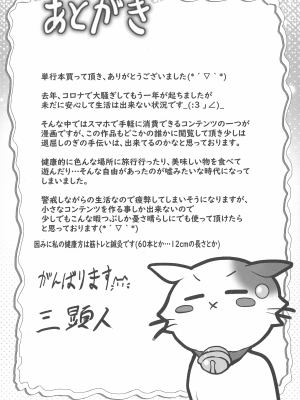 あとがき
単行本買って頂き、ありがとうございました(*´▽`*)
去年、コロナで大騒ぎしてもう一年が起ちましたが
未だに安心して生活は出来ない状況です_(:3 」∠)_
そんな中ではスマホで手軽に消費できるコンテンツの一つが
漫画ですが、この作品もどこかの誰かに閲覧して頂き少しは
退屈しのぎの手伝いは、出来てるのかなと思っております。
健康的に色んな場所に旅行行ったり、美味しい物を食べて
遊んだり…そんな自由があったのが嘘みたいな時代になって
しまいました。
警戒しながらの生活なので疲弊してしまいそうになりますが、
小さなコンテンツを作る事しか出来ないので
少しでもこんな暇つぶしか憂さ晴らしにでも使って頂けたら
と思っております(*´▽`*)
因みに私の健康方は筋トレと鍼灸です(60本とか…12cmの長さとか)
がんばります
三顕人